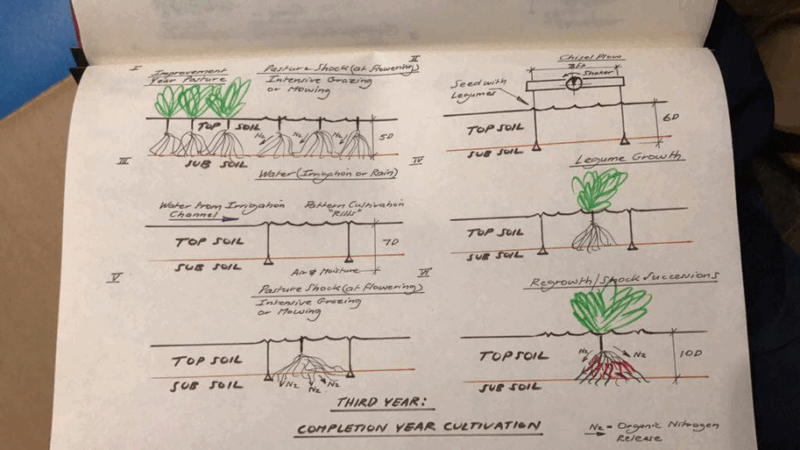 I
Improvement
Year Pasture
Pasture Shock (at flowering)
Intensive Grazing
or Mowing
TOP SOIL
N2
N2
N2
5D
SUB SOIL
II
Chisel Plow
Shaker
Seed with
Legumes
TOP SOIL
6D
SUB SOIL
III
Water (Irrigation or Rain)
Water from Irrigation
Channel
Pattern Cultivation
"Rills"
TOP SOIL
7D
SUB SOIL
Air & Moisture
IV
Legume Growth
TOP SOIL
SUB SOIL
V
Pasture Shock (at flowering)
Intensive Grazing
or Mowing
TOP SOIL
SUB SOIL
N2
N2
N2
VI
Regrowth/Shock Successions
TOP SOIL
N2
N2
10D
SUB SOIL
THIRD YEAR:
COMPLETION YEAR CULTIVATION
N2 = Organic Nitrogen
Release